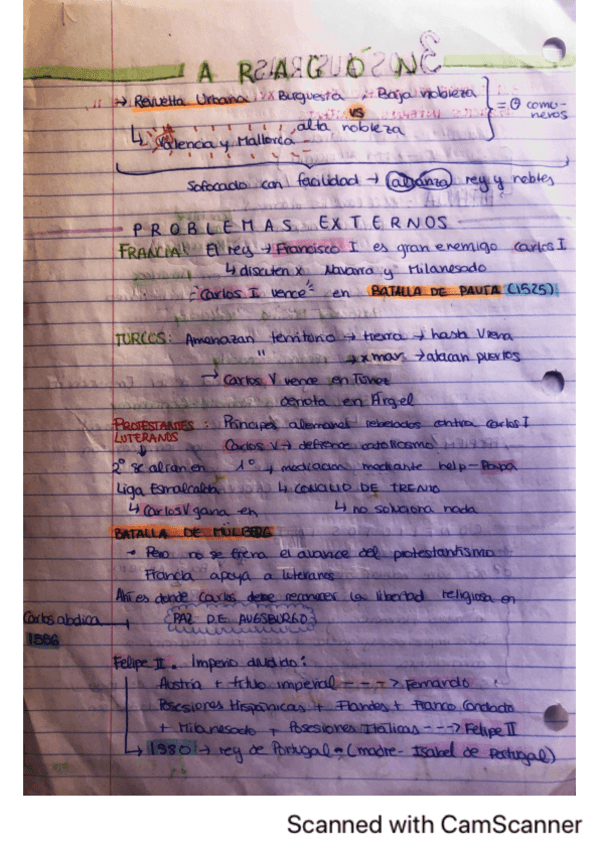 ARAGÓN
→ Revuelta Urbana x Burguesía + Baja nobleza
vs
alta nobleza
= comuneros
↳ Valencia y Mallorca
Sofocado con facilidad → alianza rey y nobles
PROBLEMAS EXTERNOS
FRANCIA: El rey → Francisco I es gran enemigo Carlos I
↳ discuten x Navarra y Milanesado
- Carlos I vence en BATALLA DE PAVÍA (1525)
TURCOS: Amenazan territorio → tierra → hasta Viena
" → x mar → atacan puertos
→ Carlos V vence en Túnez
derrota en Argel
PROTESTANTES: Príncipes alemanes rebelados contra Carlos I
LUTERANOS
Carlos V → defiende catolicismo
2º se alzan en 1º → mediación mediante help-Papa
Liga Esmalcalda ↳ CONCILIO DE TRENTO
↳ Carlos V gana en ↳ no soluciona nada
BATALLA DE MÜLBERG
→ Pero no se frena el avance del protestantismo
Francia apoya a luteranos
Ahí es donde Carlos debe reconocer la libertad religiosa en
Carlos abdica → PAZ DE AUGSBURGO
1556
Felipe II. Imperio dividido:
Austria + título imperial ---> Fernando
Posesiones Hispánicas + Flandes + Franco Condado
+ Milanesado + Posesiones Itálicas ---> Felipe II
↳ 1580 → rey de Portugal (madre - Isabel de Portugal)
Scanned with CamScanner